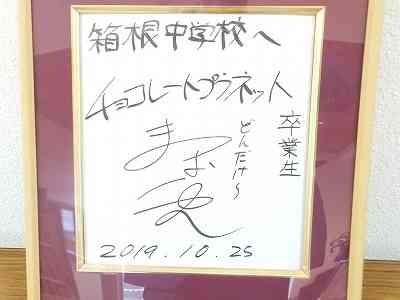 箱根中学校へ
チョコレートプラネット
卒業生
どんだけ〜
まつお
2019.10.25